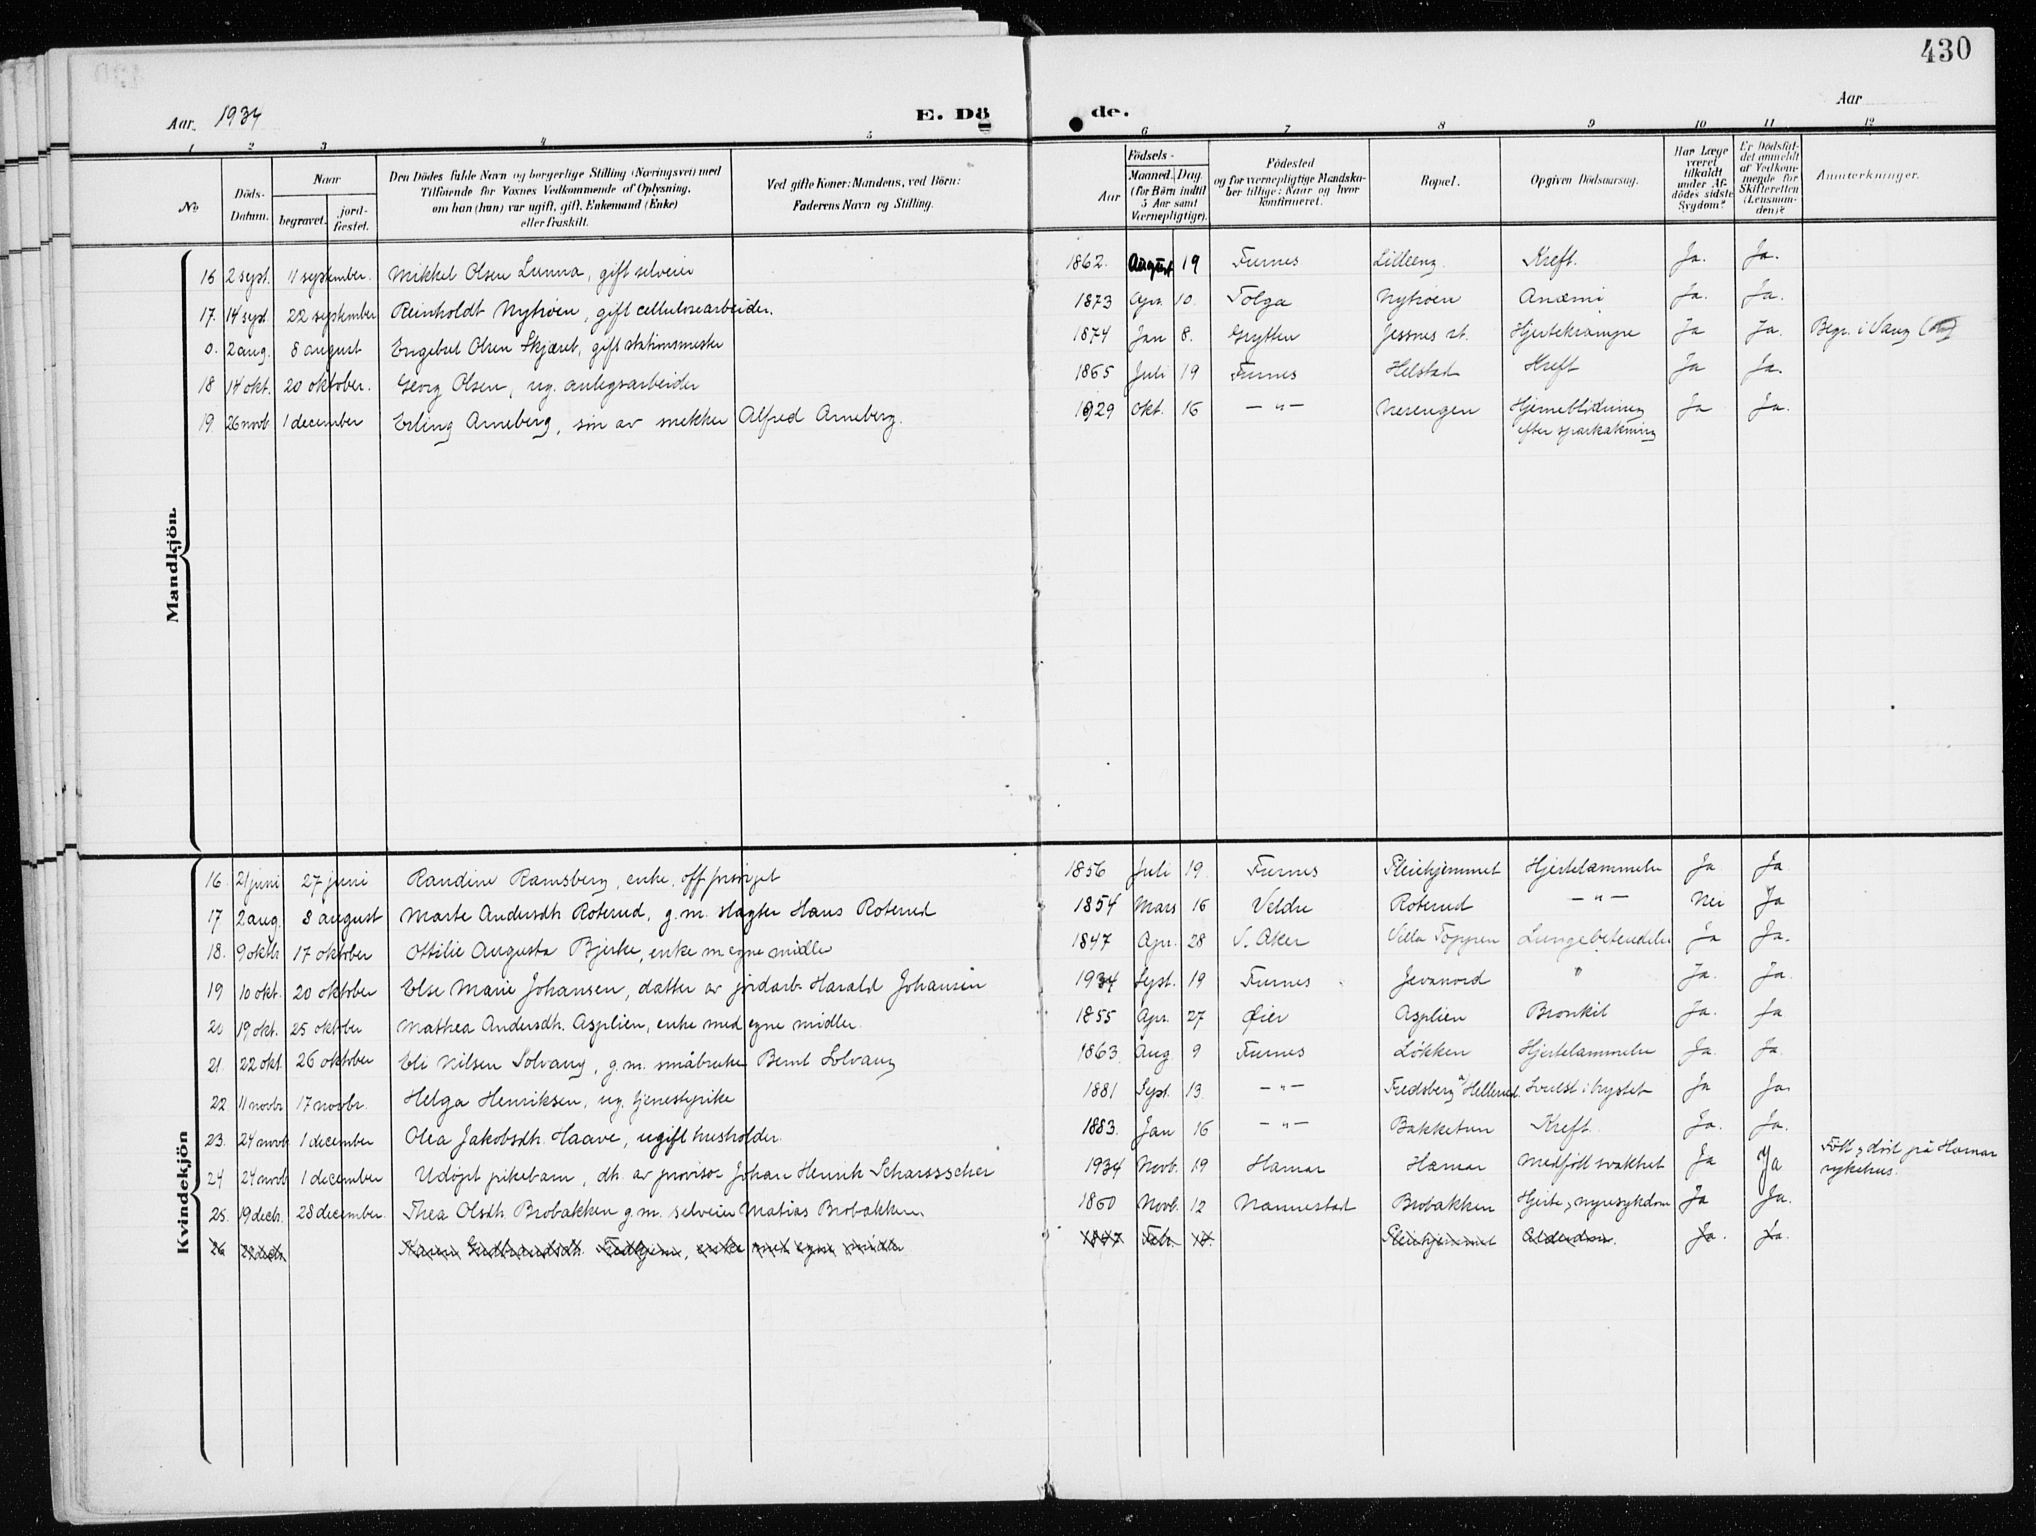 430
Aar. 1934 E. Dö de. Aar
1 2 3 4 5 6 7 8 9 10 11 12
No
Döds-Datum.
Naar
begravet.
jord-fæstet.
Den Dödes fulde Navn og borgerlige Stilling (Næringsvei) med
Tilföiende for Voxnes Vedkommende af Oplysning,
om han (hun) var ugift, gift, Enkemand (Enke)
eller fraskilt.
Ved gifte Koner: Mandens, ved Börn:
Faderens Navn og Stilling.
Födsels-
Aar
Maaned. Dag.
(for Börn indtil
5 Aar samt
Værnepligtige).
Födested
og for værnepligtige Mandska-
ber tillige: Naar og hvor
konfirmeret.
Bopæl.
Opgiven Dödsaarsag.
Har Læge
været
tilkaldt
under Af-
dödes sidste
Sygdom?
Er Dödsfal-
det anmeldt
af Vedkom-
mende for
Skifteretten
(Lensman-
den)?
Anmærkninger.
Mandkjön.
16 2 sept. 11 september. Mikkel Olsen Lunna, gift selveier 1862. August 19 Furnes Lilleeng. Kreft. Ja. Ja.
17. 14 sept 22 september Reinholdt Nytrøen, gift cellulosearbeider. 1873 Apr. 10. Tolga Nytrøen Anæmi Ja. Ja.
0. 2 aug. 8 august Engebret Olsen Skjæret, gift stationsmester 1874 Jan 8. Grytten Jessnes st. Hjertekrampe Ja Ja. Begr. i Vang
18 14 okt. 20 oktober. Georg Olsen, ug. anlegsarbeider 1865 Juli 19 Furnes Helstad Kreft Ja Ja.
19. 26 novb 1 december Erling Arneberg, sön av snekker Alfred Arneberg. 1929 Okt. 16 — " — Nerengen Hjerneblödning Ja Ja.
efter sparkakning
Kvindekjön
16. 21 juni 27 juni Randine Ramsberg, enke, off forsörget 1856 Juli 19. Furnes Pleiehjemmet Hjertelammelse Ja Ja.
17 2 aug. 8 august Marte Andersdh. Roterud, g.m. slagter Hans Roterud 1854 Mars 16 Veldre Roterud — " — Nei Ja
18. 9 oktbr 17 oktober Ottilie Augusta Bjerke, enke m egne midler 1847 Apr. 28 V. Aker Villa Toppen Lungebetendelse Ja Ja.
19 10 okt. 20 oktober Else Marie Johansen, datter av jordarb. Harald Johansen 1934 Sept. 19 Furnes Jevanord " Ja. Ja.
20 19 okt. 25 oktober Mathea Andersdh. Asplien, enke med egne midler. 1855 Apr. 27 Øier Asplien Bronkit Ja. Ja
21. 22 okt 26 oktober Eli Nilsen Solvang, g.m. småbruker Bernt Solvang 1863 Aug 9 Furnes Løkken Hjertelammelse Ja. Ja.
22. 11 novbr 17 novbr. Helga Henriksen, ug. tjenestepike 1881 Sept. 13. — " — Fredsberg Hellerud. Svulst i brystet Ja Ja.
23. 24 novb 1 december Olea Jakobsdh. Haave, ugift husholder. 1883. Jan 16 — " — Bakketun Kreft. Ja. Ja.
24 24 novb 1 december Udöpt pikebarn, dh. av provisor Johan Henrik Scharffscher 1934 Novb. 19 Hamar Hamar Medfött svakhet Ja Ja Född & död på Hamar
sykehus.
25. 19 decb. 28 december. Thea Olsdh. Brobakken g.m. selveier Matias Brobakken 1860 Novb. 12 Nannestad Brobakken Hjerte & nyresykdom Ja Ja.
26 22 decb Karen Gudbrandsdh. enke med egne midler 1847 Feb. Pleiehjemmet Alderdom. Ja. Ja.